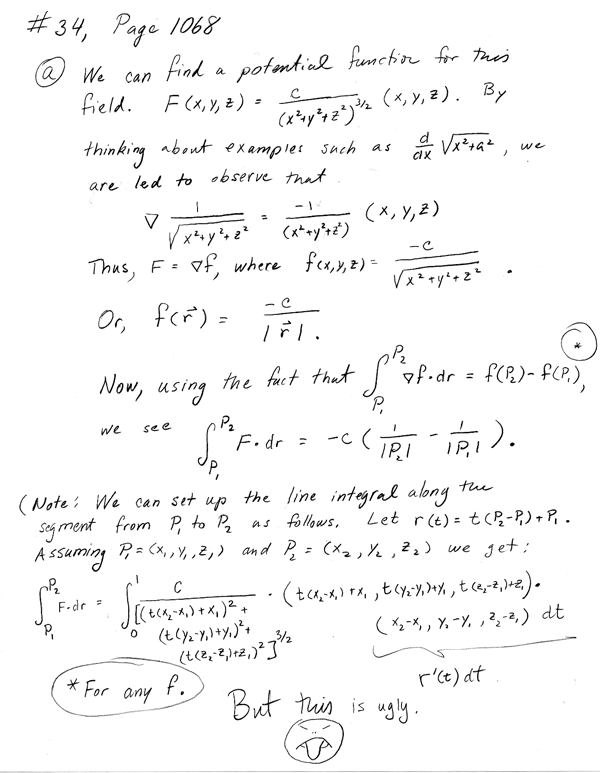 #34, Page 1068
(a) We can find a potential function for this
field. F(x,y,z) = c/(x²+y²+z²)^{3/2} (x,y,z). By
thinking about examples such as d/dx √(x²+a²), we
are led to observe that
∇ 1/√(x²+y²+z²) = -1/(x²+y²+z²) (x,y,z)
Thus, F = ∇f, where f(x,y,z) = -c/√(x²+y²+z²).
Or, f(r⃗) = -c/|r⃗|.
*
Now, using the fact that ∫_{P₁}^{P₂} ∇f·dr = f(P₂)-f(P₁),
we see ∫_{P₁}^{P₂} F·dr = -c(1/|P₂| - 1/|P₁|).
(Note: We can set up the line integral along the
segment from P₁ to P₂ as follows. Let r(t) = t(P₂-P₁)+P₁.
Assuming P₁=(x₁,y₁,z₁) and P₂=(x₂,y₂,z₂) we get:
∫_{P₁}^{P₂} F·dr = ∫_0^1 c/[(t(x₂-x₁)+x₁)²+(t(y₂-y₁)+y₁)²+(t(z₂-z₁)+z₁)²]^{3/2} · (t(x₂-x₁)+x₁, t(y₂-y₁)+y₁, t(z₂-z₁)+z₁)·
(x₂-x₁, y₂-y₁, z₂-z₁) dt
r'(t)dt
* For any f.
But this is ugly.